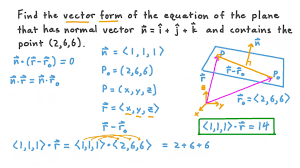 Find the vector form of the equation of the plane
that has normal vector n̂ = î + ĵ + k̂ and contains the
point (2,6,6).
n⃗·(r⃗-r⃗₀) = 0
n⃗·r⃗ = n⃗·r⃗₀
n⃗ = <1,1,1>
P₀ = (2,6,6)
P = (x,y,z)
r⃗ = <x,y,z>
r⃗-r⃗₀
n⃗
P
r⃗-r⃗₀
P₀
r⃗
r⃗₀ = <2,6,6>
<1,1,1>·r⃗ = 14
<1,1,1>·r⃗ = <1,1,1>·<2,6,6> = 2+6+6